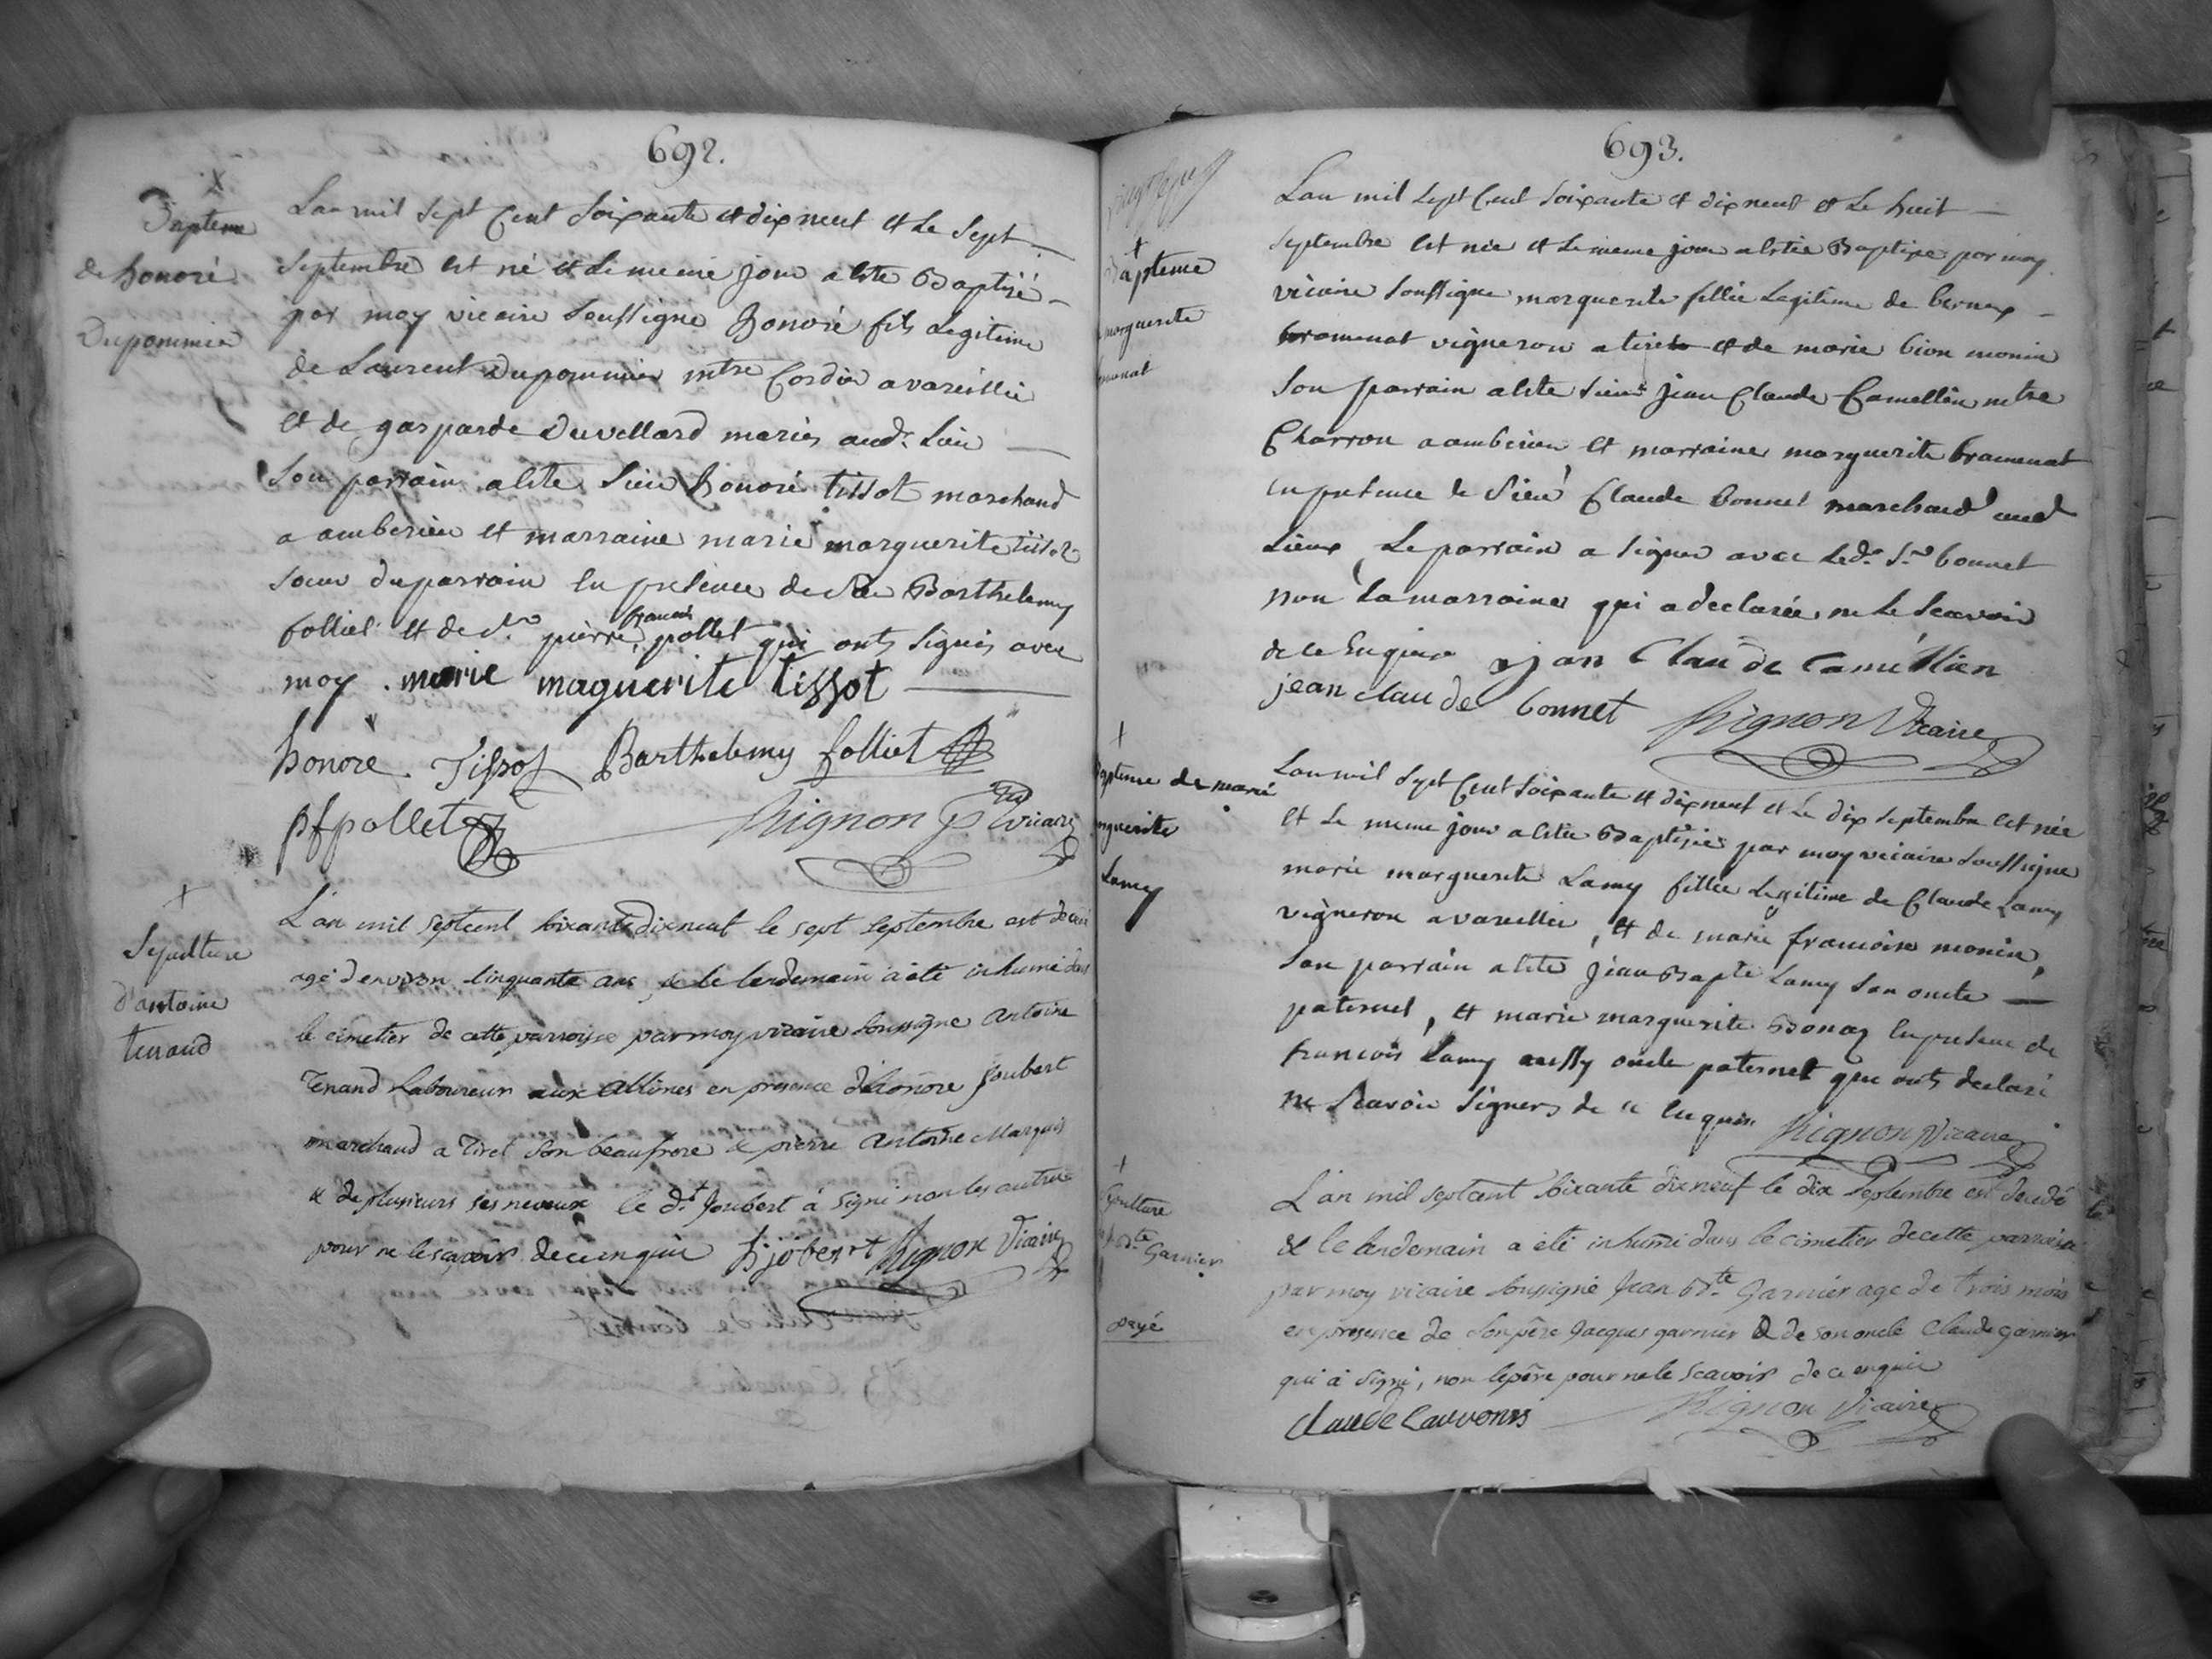 692.
X
Bapteme
de honoré
Dupommier
Lan mil sept Cent soixante et dix neuf et le sept
septembre est né et le meme jour a eté Baptisé
par moy vicaire soussigne honoré fils legitime
de Laurent Dupommier mtre Cordier a vareillie
et de gasparde Duvellard mariés aud. lieu
son parrain a eté sieur honoré tissot marchand
a amberieu et marraine marie marguerite tissot
soeur du parrain en presence de Sr Barthelemy
folliet et de Sr pierre francois pollet qui onts signés avec
moy . marie maguerite tissot
honoré Tissot Barthelemy folliet
pfpollet Rignon vicaire
+
Sepulture
d'antoine
tenand
L'an mil septcent soixante dixneuf le sept septembre est decede
agé d'environ cinquante ans, & le lendemain a été inhumé dans
le cimetier de cette parroisse par moy vicaire soussigné Antoine
Tenand Laboureur aux Allimes en presence d'honore Joubert
marchand a Tiret son beaufrere & pierre Antoine Marquis
& de plusieurs ses neveux le dt Joubert à signé non les autres
pour ne le sçavoir de ce enquis hjobert Rignon Vicaire
693.
+
Bapteme
marguerite
Lan mil sept Cent soixante et dix neuf et le huit
septembre est née et le meme jour a estée Baptisée par moy
vicaire soussigne marguerite fillie legitime de
bramenat vigneron a tiret et de marie bion monin
son parrain a eté sieur jean Claude Camellin mtre
Charron a amberieu et marraine marguerite bramenat
en presence de sieur Claude bonnet marchand aud
lieux, le parrain a signer avec led. Sr bonnet
non la marraine qui a declarée ne le scavoir
de ce enquise jan Claude Caméllien
jean claude bonnet Rignon Vicaire
+
Bapteme de marie
marguerite
Lamy
Lan mil sept Cent soixante et dix neuf et le dix septembre est née
et le meme jour a estée Baptisée par moy vicaire soussigne
marie marguerite Lamy fillie legitime de Claude Lamy
vigneron a vareillie, et de marie francoise monin,
son parrain a eté jean Bapte Lamy son oncle
paternel, et marie marguerite Bonaz en presence de
francois Lamy aussy oncle paternel que onts declaré
ne scavoir signers de ce enquis Rignon Vicaire
+
Sepulture
Garnier
payé
L'an mil septcent soixante dixneuf le dix septembre est decedé
& le lendemain a été inhumé dans le cimetier de cette parroisse
par moy vicaire soussigné Jean Bte Garnier age de trois mois
en presence de son père Jacques garnier & de son oncle Claude garnier
qui a signé, non le père pour ne le scavoir de ce enquis
Claude Rignon Vicaire